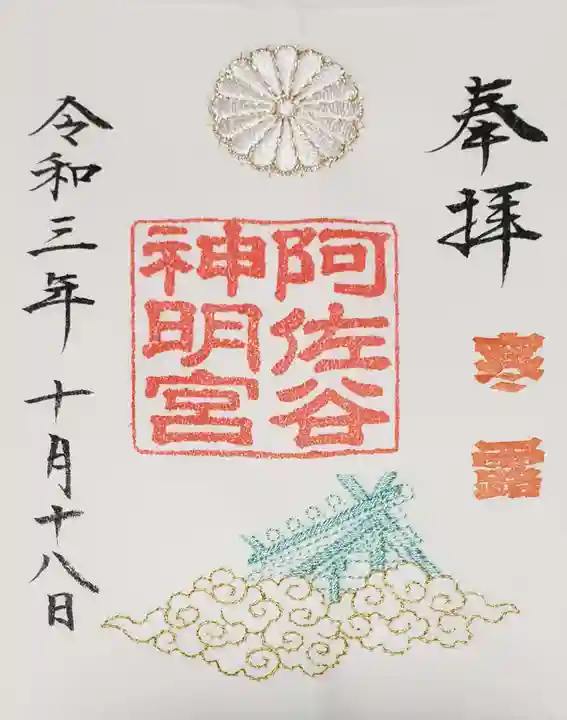 奉拝
寒露
阿佐谷
神明宮
令和三年十月十八日